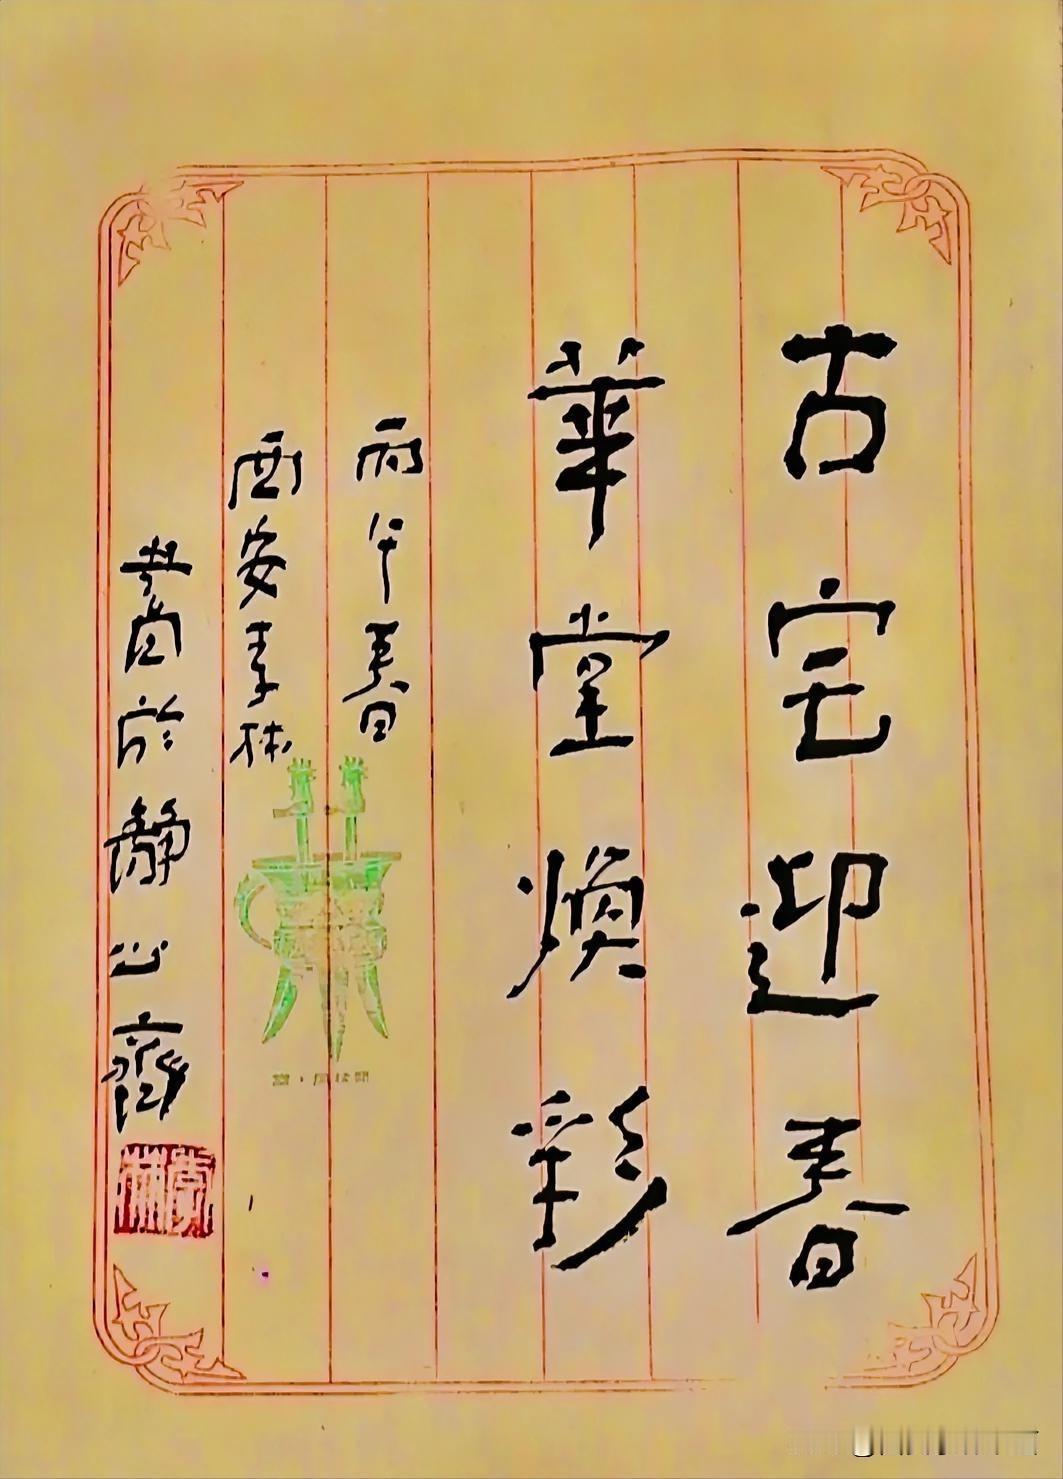 古宅迎春
華堂煥彩
丙午春日
西安李林
於靜心齋